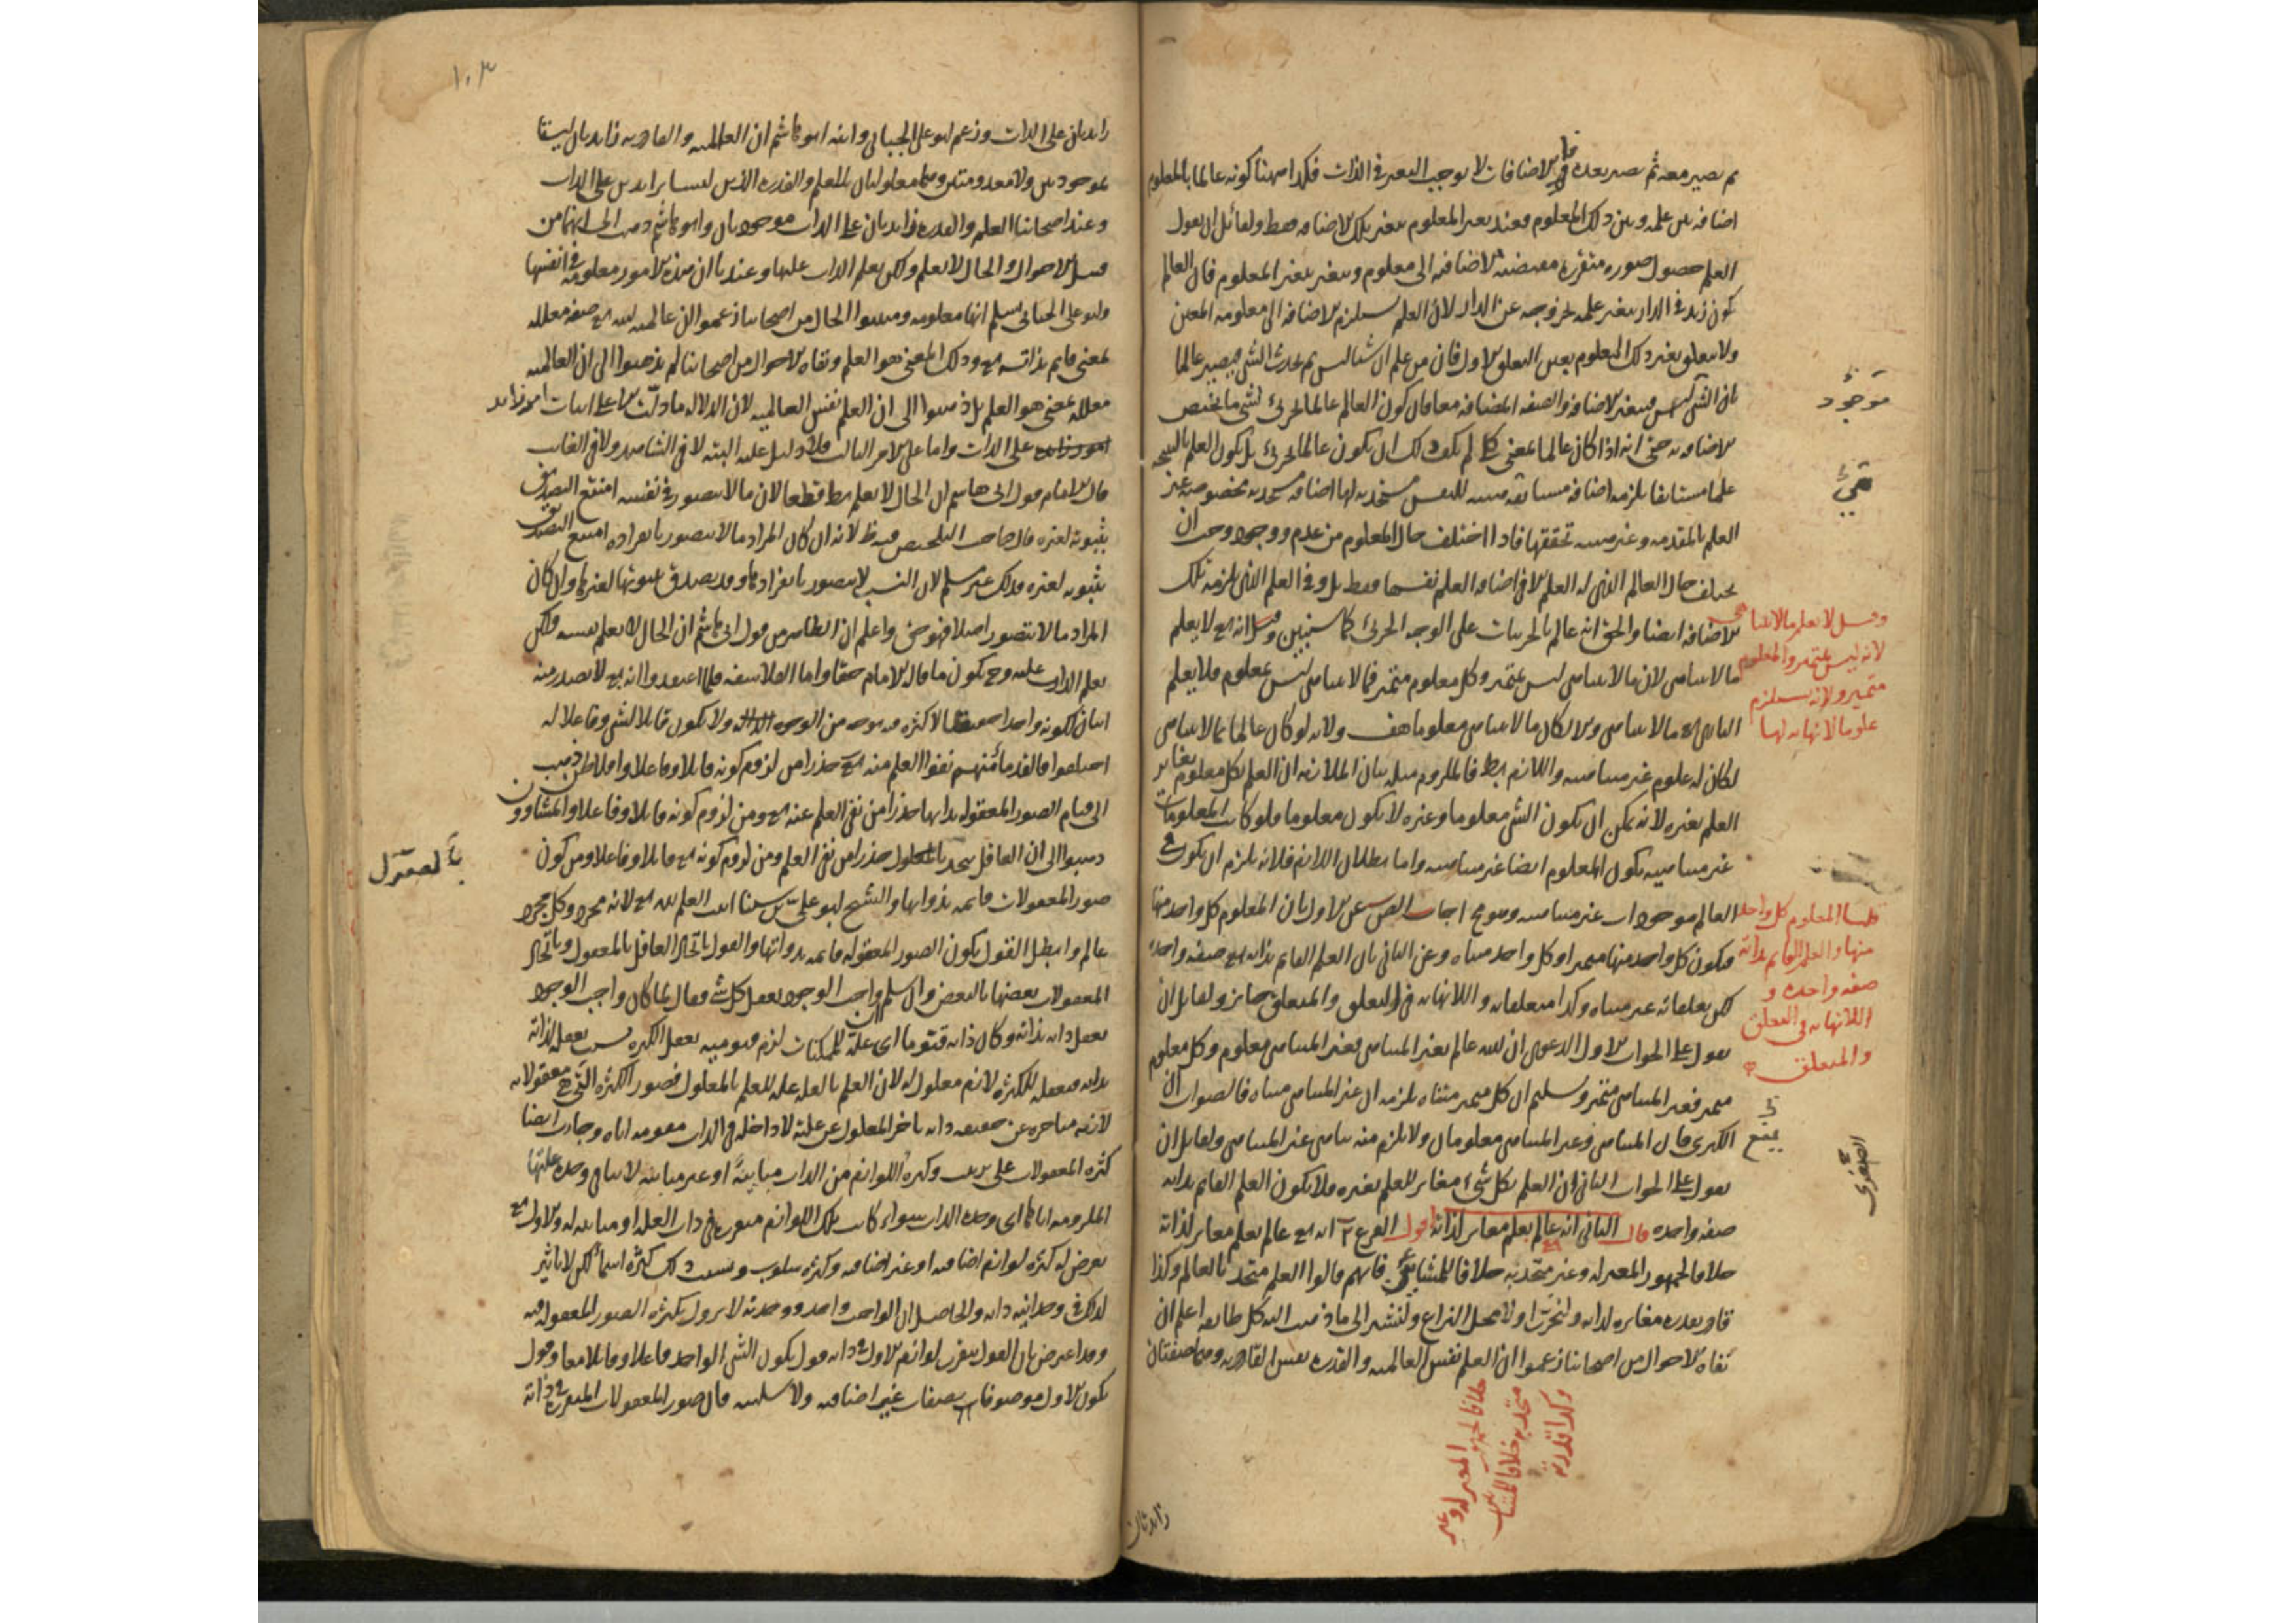 ثم يصير معه ثم يصير بعده فان الاضافات لا يوجب التغير في الذات فكذا ههنا كونه عالما بالمعلوم
اضافة بين علمه وبين ذلك المعلوم فعند تغير المعلوم يتغير تلك الاضافة فقط ولقائل ان يقول
العلم حصول صورة متقررة مقتضية الاضافة الى معلوم ويتغير بتغير المعلوم فان العالم
كون زيد في الدار يتغير علمه بخروجه عن الدار لان العلم يستلزم الاضافة الى معلومه المعين
ولا يتعلق بغير ذلك المعلوم بعين التعلق الاول فان من علم ان شيئا ليس ثم يحدث الشي فيصير عالما
بان الشي ليس فيتغير الاضافة والصفة المضافة معا فان كون العالم عالما بجزئي لشي ما يختص
الاضافة به حتى انه اذا كان عالما بمعنى كلي لم يكف ذلك ان يكون عالما بجزئي بل يكون العلم بالنتيجة
علما مستانفا يلزمه اضافة مستانفة للنفس مستجدة لها اضافة مستجدة مخصوصة غير
العلم بالمقدمة وغير تحققها فاذا اختلف حال المعلوم من عدم ووجود وجب ان
يختلف حال العالم الذي له العلم لا في اضافة العلم نفسها فقط بل وفي العلم الذي يلزمه تلك
الاضافة ايضا والحق انه عالم بالجزئيات على الوجه الجزئي كما سنبين وقيل انه تع لا يعلم
ما لا يتناهى لان ما لا يتناهى ليس بمتميز وكل معلوم متميز فما لا يتناهى ليس بمعلوم فلا يعلم
الباري تع ما لا يتناهى والا لكان ما لا يتناهى معلوما هف ولانه لو كان عالما بما لا يتناهى
لكان له علوم غير متناهية واللازم بط فالملزوم مثله بيان الملازمة ان العلم بكل معلوم يغاير
العلم بغيره لانه يمكن ان يكون الشي معلوما وغيره لا يكون معلوما فلو كانت المعلومات
غير متناهية يكون المعلوم ايضا غير متناهية واما بطلان اللازم فلانه يلزم ان يكون في
العالم موجودات غير متناهية وهو مح اجاب المص عن الاول بان المعلوم كل واحد منها
فيكون كل واحد منها متميزا وكل واحد متناه وعن الثاني بان العلم القائم بذاته تع صفة واحدة
لكن تعلقاته غير متناه وكذا متعلقاته واللانهاية في التعلق والمتعلق جائز ولقائل ان
يقول على الجواب الاول الدعوى ان الله عالم بغير المتناهى فغير المتناهى معلوم وكل معلوم
متميز فغير المتناهى متميز وسلم ان كل متميز متناه يلزمه ان غير المتناهى متناه فالصواب ان
الكبرى فان المتناهى وغير المتناهى معلومان ولا يلزم منه تناهي غير المتناهى ولقائل ان
يقول على الجواب الثاني ان العلم بكل شيء مغاير للعلم بغيره فلا يكون العلم القائم بذاته
صفة واحدة قال الثاني انه تع عالم بعلم مغاير لذاته اقول الفرع ٢ انه تع عالم بعلم مغاير لذاته
خلافا لجمهور المعتزلة وغير متحد به خلافا للمشائين فانهم قالوا العلم متحد بالعالم وكذا
قادر بقدرة مغايرة لذاته ولنحرر اولا محل النزاع ولنشر الى ما ذهب اليه كل طائفة اعلم ان
نفاة الاحوال من اصحابنا زعموا ان العلم نفس العالمية والقدرة نفس القادرية وهما صفتان
موجود
وقيل لا يعلم ما لا يتناهى
لانه ليس بمتميز والمعلوم
متميز ولانه يستلزم
علوما لا نهاية لها
قلنا المعلوم كل واحد
منها والعلم القايم بذاته
صفة واحدة و
اللانهاية في التعلق
والمتعلق
يمنع
الصغرى
خلافا لجمهور المعتزلة وغير
متحد به خلافا للمشائين
وكذا قدرته
زائدتان
١٠٣
زائدتان على الذات وزعم ابو علي الجبائي وابنه ابو هاشم ان العالمية والقادرية زائدتان ليستا
بموجودتين ولا معدومتين وهما معلولتان للعلم والقدرة الذين ليسا بزائدين على الذات
وعند اصحابنا العلم والقدرة زائدتان على الذات موجودتان وابو هاشم ذهب الى انهما من
قبيل الاحوال والحال لا يعلم ولكن يعلم الذات عليها وعندنا ان هذه الامور معلومة في انفسها
وابو علي الجبائي يسلم انها معلومة ومثبتوا الحال من اصحابنا زعموا ان عالمية الله تع صفة معللة
بمعنى قايم بذاته تع وذلك المعنى هو العلم ونفاة الاحوال من اصحابنا لم يذهبوا الى ان العالمية
معللة بمعنى هو العلم بل ذهبوا الى ان العلم نفس العالمية لان الدلالة ما دلت الا على اثبات امر زايد
على الذات واما على الامر الثالث فلا دليل عليه البتة لا في الشاهد ولا في الغايب
قال الامام قول ابي هاشم ان الحال لا يعلم بط قطعا لان ما لا يتصور في نفسه امتنع التصديق
بثبوته لغيره قال صاحب التلخيص فيه نظر لانه ان كان المراد ما لا يتصور بانفراده امتنع التصديق
بثبوته لغيره فذلك غير مسلم لان النسب لا يتصور بانفرادها وقد يصدق بثبوتها لغيرها وان كان
المراد ما لا يتصور اصلا فهو حق واعلم ان الظاهر من قول ابي هاشم ان الحال لا يعلم نفسه ولكن
يعلم الذات عليه وح يكون ما قال الامام حقا واما الفلاسفة فلما اعتقدوا انه تع لا يصدر منه
اثنان لكونه واحدا حقيقيا لا كثرة فيه بوجه من الوجوه ولا يكون قابلا لشي وفاعلا له
اختلفوا فالقدماء منهم نفوا العلم عنه تع حذرا من لزوم كونه قابلا وفاعلا وافلاطن ذهب
الى قيام الصور المعقولة بذاتها حذرا من نفي العلم عنه تع ومن لزوم كونه قابلا وفاعلا والمشاؤون
ذهبوا الى ان العاقل يتحد بالمعقول حذرا من نفي العلم ومن لزوم كونه تع قابلا وفاعلا ومن كون
صور المعقولات قائمة بذواتها والشيخ ابو علي بن سينا اثبت العلم لله تع لانه مجرد وكل مجرد
عالم وابطل القول بكون الصور المعقولة قائمة بذواتها والقول باتحاد العاقل بالمعقول وباتحاد
المعقولات بعضها بالبعض وان سلم ان واجب الوجود يعقل كل شيء فقال لما كان واجب الوجود
يعقل ذاته بذاته وكان ذاته قيوما اي علة للممكنات لزم قيوميته بعقل الكثرة بسبب تعقله لذاته
بذاته فتعقله للكثرة لازم معلول له لان العلم بالعلة علة للعلم بالمعلول فصور الكثرة التي هي معقولاته
لازمة متاخرة عن حقيقة ذاته تاخر المعلول عن علته لا داخلة في الذات مقومة اياه وجاءت ايضا
كثرة المعقولات على ترتيب وكثرة اللوازم من الذات مباينة او غير مباينة لا ينافي وحدة علتها
الملزومة اياها اي وحدة الذات سواء كانت تلك اللوازم متقررة في ذات العلة او مباينة له والاول تع
يعرض له كثرة لوازم اضافية او غير اضافية وكثرة سلوب وبسبب ذلك كثرة اسماء لكن لا تاثير
لذلك في وحدانية ذاته والحاصل ان الواجب واحد ووحدته لا يزول بكثرة الصور المعقولة فيه
وقد اعترض بان القول بتقرر لوازم الاول في ذاته قول بكون الشي الواحد فاعلا وقابلا معا وقول
بكون الاول موصوفا بصفات غير اضافية ولا سلبية فان صور المعقولات المتقررة في ذاته
بالمعقول